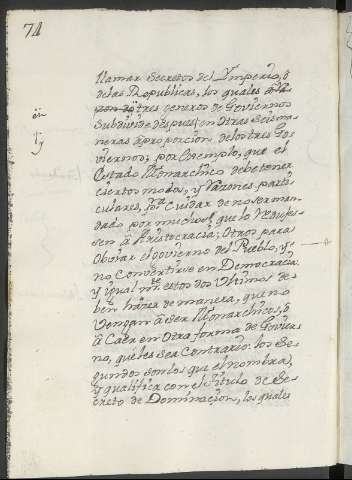 74
llamar secretos del Ymperio, ó
delas Republicas, los quales
tres generos de Goviernos
Subdivide despues en otras seis ma=
neras á proporcion delos tres Go=
viernos; por exemplo, que el
Estado Monarchico debe tener
ciertos modos, y Razones parti=
culares, pª Cuidar de no ser man=
dado por muchos, que lo Reduges=
sen á Aristocracia; otros para
Obviar el Govierno del Pueblo, y
no Convertirse en Democracia
y igual mte estos dos Ultimos de=
ben hazer de manera, que no
Vengan á ser Monarchicos, ó
á Caer en otra forma de Govier=
no, que les sea Contrario: los Se=
gundos son los que el nombra,
y qualifica con el titulo de Se=
creto de Dominacion, los quales